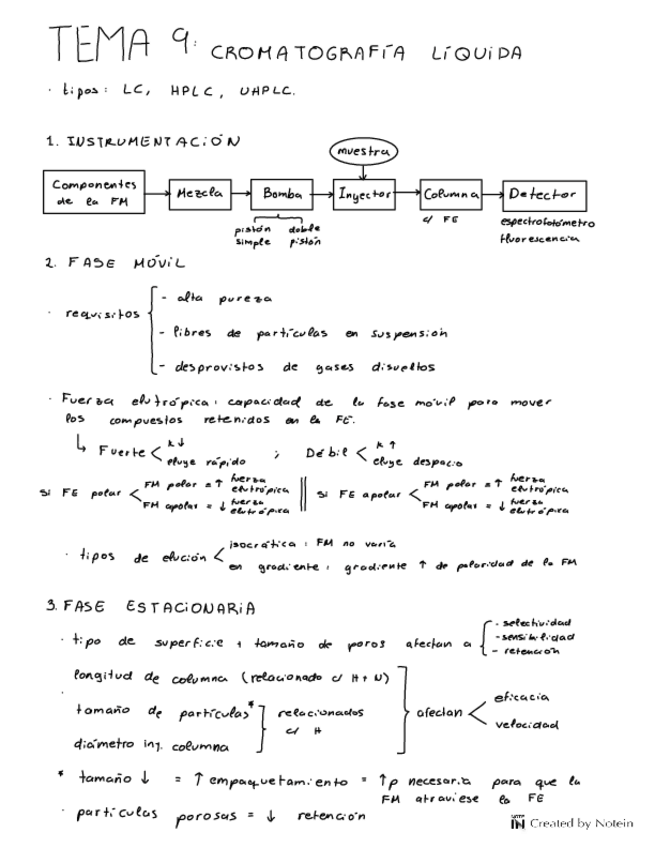 TEMA 9: CROMATOGRAFÍA LÍQUIDA
· tipos: LC, HPLC, UHPLC.
1. INSTRUMENTACIÓN
muestra
Componentes de la FM → Mezcla → Bomba → Inyector → Columna → Detector
pistón simple doble pistón
c/ FE
espectrofotómetro
fluorescencia
2. FASE MÓVIL
· requisitos
- alta pureza
- libres de partículas en suspensión
- desprovistos de gases disueltos
· Fuerza elutrópica: capacidad de la fase móvil para mover
los compuestos retenidos en la FE.
↳ Fuerte < k↓ eluye rápido ; Débil < k↑ eluye despacio
si FE polar < FM polar = ↑ fuerza elutrópica
FM apolar = ↓ fuerza elutrópica
si FE apolar < FM polar = ↑ fuerza elutrópica
FM apolar = ↓ fuerza elutrópica
· tipos de elución < isocrática: FM no varía
en gradiente: gradiente ↑ de polaridad de la FM
3. FASE ESTACIONARIA
· tipo de superficie + tamaño de poros afectan a
- selectividad
- sensibilidad
- retención
longitud de columna (relacionado c/ H + N)
· tamaño de partículas*
diámetro int. columna
relacionados c/ H
afectan < eficacia
velocidad
* tamaño ↓ = ↑ empaquetamiento = ↑p necesaria para que la
FM atraviese la FE
· partículas porosas = ↓ retención
Created by Notein